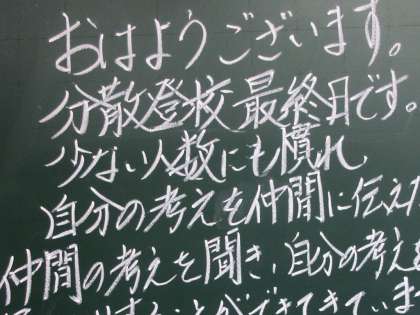 おはようございます。
分散登校最終日です。
少ない人数にも慣れ
自分の考えを仲間に伝えた
仲間の考えを聞き、自分の考え
ことができています